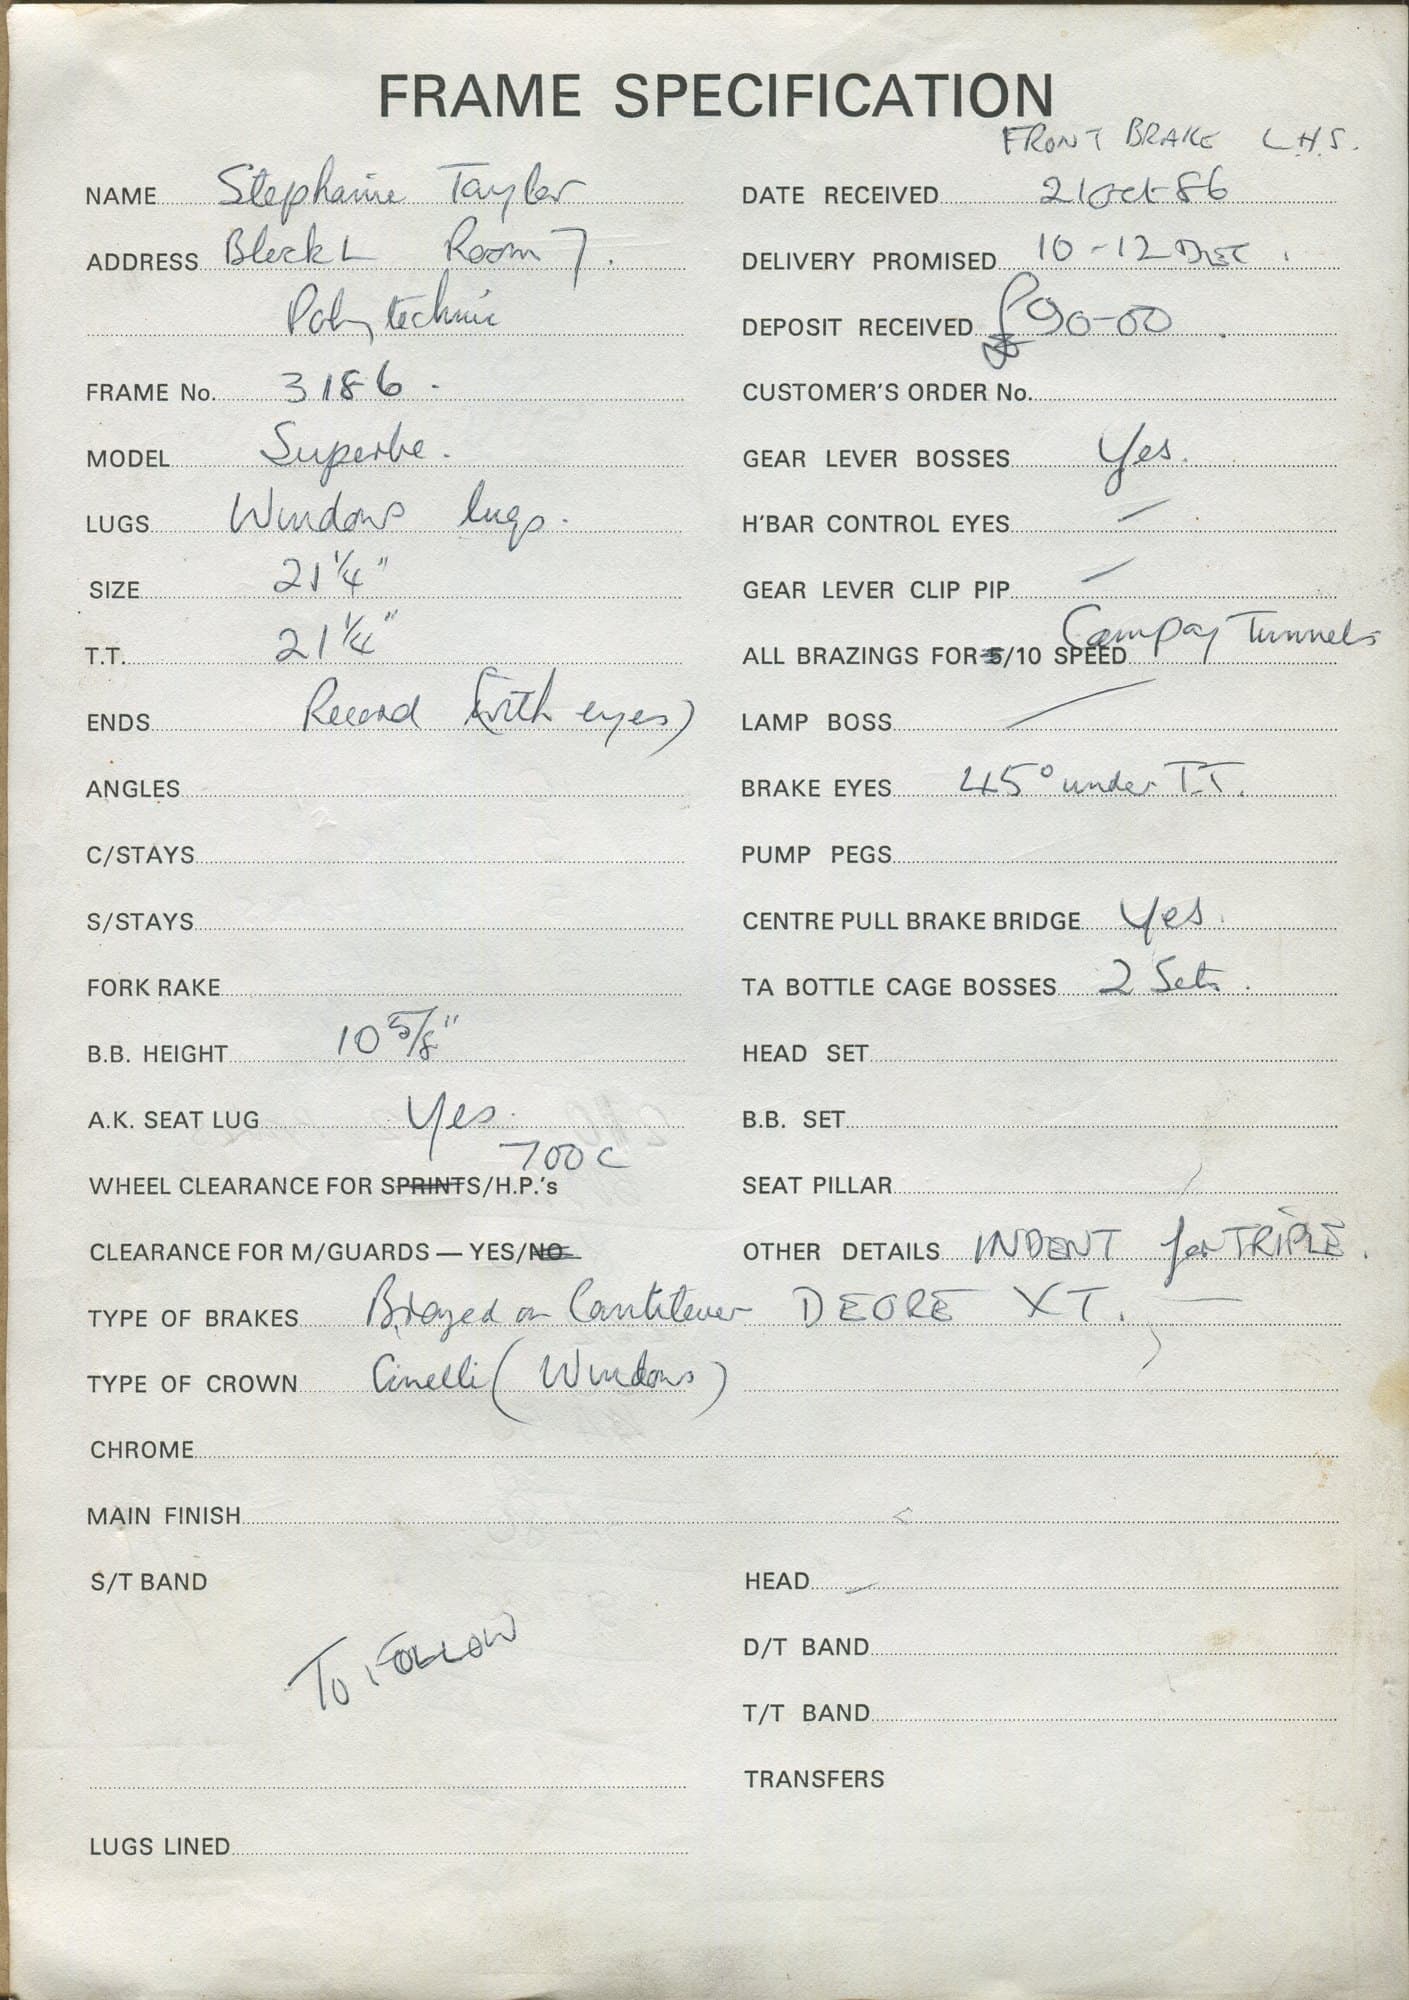 FRAME SPECIFICATION
FRONT BRAKE L.H.S.
NAME Stephanie Taylor
DATE RECEIVED 21 Oct 86
ADDRESS Block L Room 7.
DELIVERY PROMISED 10-12 DEC.
Polytechnic
DEPOSIT RECEIVED £90-00
FRAME No. 3186.
CUSTOMER'S ORDER No.
MODEL Superbe.
GEAR LEVER BOSSES Yes.
LUGS Windows lugs.
H'BAR CONTROL EYES —
SIZE 21 1/4"
GEAR LEVER CLIP PIP —
T.T. 21 1/4"
ALL BRAZINGS FOR 5/10 SPEED Campag Tunnels
ENDS Record (with eyes)
LAMP BOSS —
ANGLES
BRAKE EYES 45° under T.T.
C/STAYS
PUMP PEGS
S/STAYS
CENTRE PULL BRAKE BRIDGE Yes.
FORK RAKE
TA BOTTLE CAGE BOSSES 2 Sets.
B.B. HEIGHT 10 5/8"
HEAD SET
A.K. SEAT LUG Yes.
B.B. SET
700C
WHEEL CLEARANCE FOR SPRINTS/H.P.'s
SEAT PILLAR
CLEARANCE FOR M/GUARDS — YES/NO
OTHER DETAILS INDENT for TRIPLE.
TYPE OF BRAKES Brazed on Cantilever DEORE XT. —
TYPE OF CROWN Cinelli (Windows)
CHROME
MAIN FINISH
S/T BAND
HEAD —
To FOLLOW
D/T BAND
T/T BAND
TRANSFERS
LUGS LINED